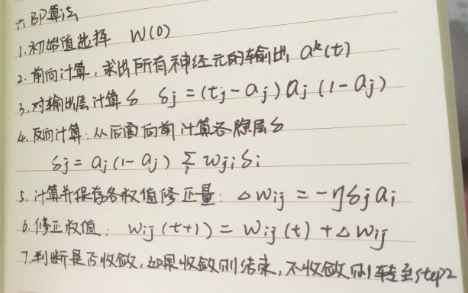 六 BP算法
1. 初始值选择 W(0)
2. 前向计算, 求出所有神经元的输出 aᵏ(t)
3. 对输出层计算δ δj = (tj - aj) aj (1 - aj)
4. 反向计算: 从后面向前计算各隐层δ
δj = aj(1 - aj) Σi wji δi
5. 计算并保存各权值修正量: △wij = -ηδj ai
6. 修正权值: wij(t+1) = wij(t) + △wij
7. 判断是否收敛, 如果收敛则结束, 不收敛则转至step2